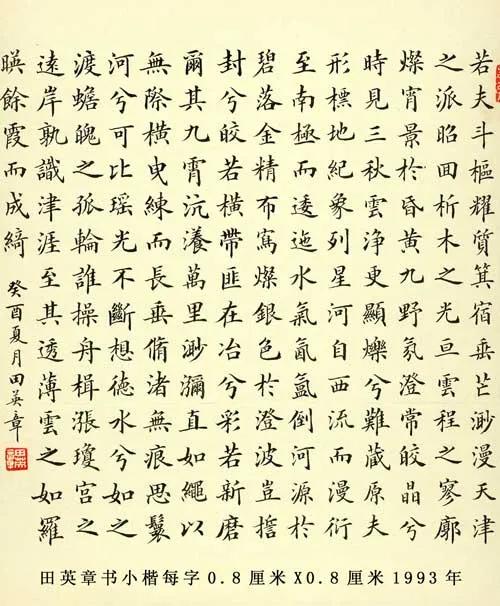 若夫斗樞耀質箕宿垂芒渺漫天津
之派昭回析木之光亘雲程之寥廓
燦宵景於昏黃九野氛澄常皎晶兮
時見三秋雲淨更顯爍兮難藏原夫
形標地紀象列星河自西流而漫衍
至南極而逶迤水氣氤氳倒河源於
碧落金精布寫燦銀色於澄波豈
封兮皎若橫帶匪在冶兮彩若新磨
爾其九霄沆瀁萬里渺瀰直如繩以
無際橫曳練而長垂脩渚無痕思鬟
河兮可比瑤光不斷想德水兮如之
渡蟾魄之孤輪誰操舟楫漲瓊宮之
遠岸孰識津涯至其透薄雲之如羅
暎餘霞而成綺
癸酉夏月田英章
田英章书小楷每字0.8厘米X0.8厘米1993年